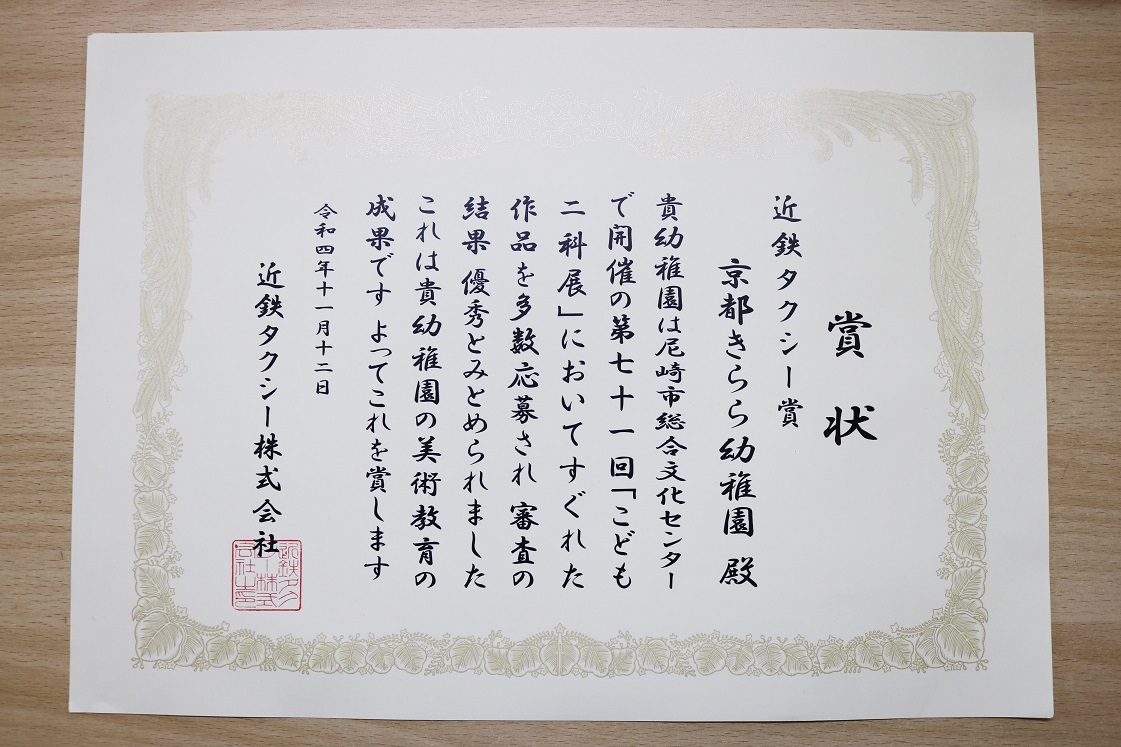 賞状
近鉄タクシー賞
京都きらら幼稚園 殿
貴幼稚園は尼崎市総合文化センター
で開催の第七十一回「こども
二科展」においてすぐれた
作品を多数応募され 審査の
結果 優秀とみとめられました
これは貴幼稚園の美術教育の
成果です よってこれを賞します
令和四年十一月十二日
近鉄タクシー株式会社
近鉄タク
シー株式
会社之印